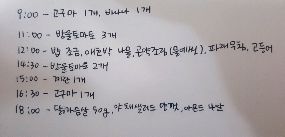 9:00 - 고구마 1개, 바나나 1개
11:00 - 방울토마토 3개
12:00 - 밥 조금, 애호박 나물, 곤약조림(올메씨), 파채무침, 고등어
14:30 - 방울토마토 2개
15:00 - 계란 1개
16:30 - 고구마 1개
18:00 - 닭가슴살 50g, 야채샐러드 한컵, 아몬드 4알